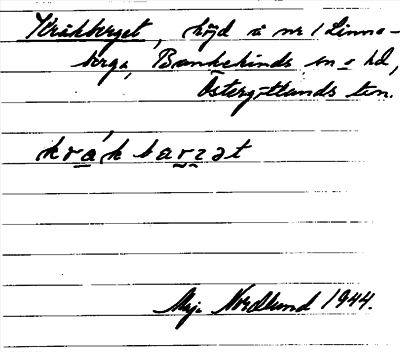 Kråkberget, höjd å nr 1 Linne-
berga, Bankekinds sn o hd,
Östergötlands län.
krákbarzət
Maj. Nordlund 1944.